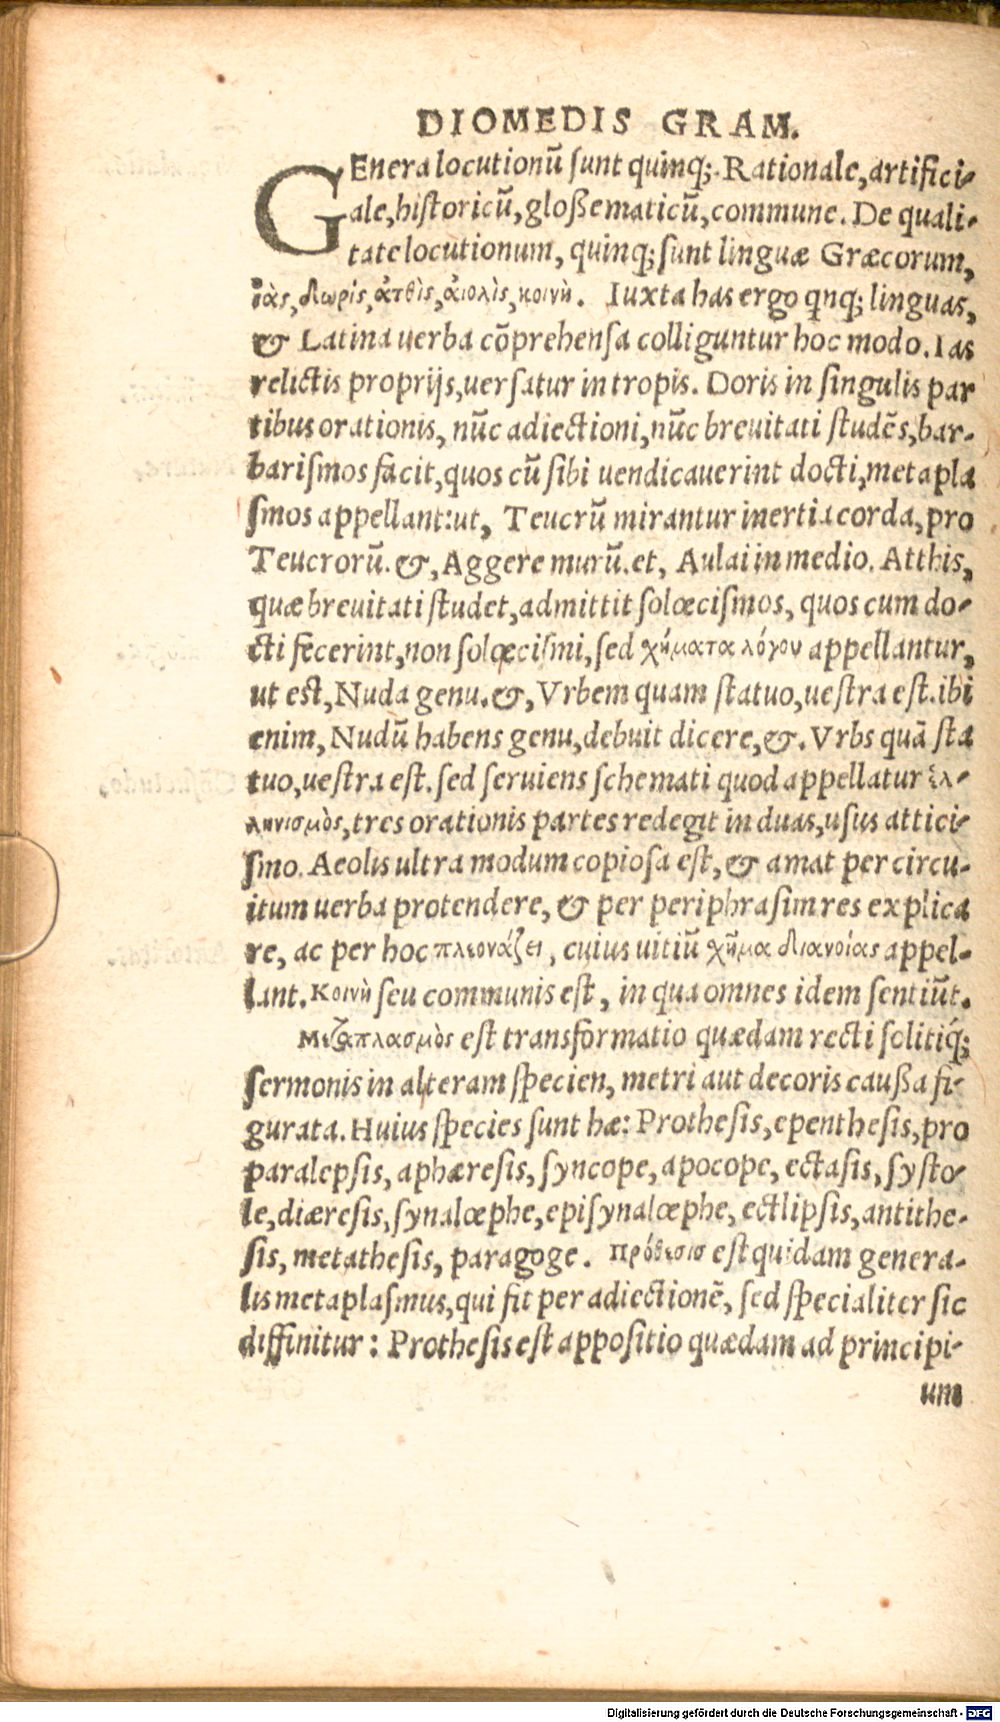 DIOMEDIS GRAM.
GEnera locutionū sunt quinq;. Rationale, artifici-
ale, historicū, gloßematicū, commune. De quali-
tate locutionum, quinq; sunt linguæ Græcorum,
ἰὰς, δωρὶς, ἀτθὶς, ἀιολὶς, κοινὴ. Iuxta has ergo qnq; linguas,
& Latina uerba cōprehensa colliguntur hoc modo. Ias
relictis proprijs, uersatur in tropis. Doris in singulis par
tibus orationis, nūc adiectioni, nūc breuitati studēs, bar-
barismos facit, quos cū sibi uendicauerint docti, metapla
smos appellant: ut, Teucrū mirantur inertia corda, pro
Teucrorū. &, Aggere murū. et, Aulai in medio. Atthis,
quæ breuitati studet, admittit solœcismos, quos cum do-
cti fecerint, non solœcismi, sed χήματα λόγου appellantur,
ut est, Nuda genu. &, Vrbem quam statuo, uestra est. ibi
enim, Nudū habens genu, debuit dicere, &. Vrbs quā sta
tuo, uestra est. sed seruiens schemati quod appellatur ἑλ-
ληνισμὸς, tres orationis partes redegit in duas, usus attici-
smo. Aeolis ultra modum copiosa est, & amat per circu-
itum uerba protendere, & per periphrasim res explica
re, ac per hoc πλεονάζει, cuius uitiū χῆμα διανοίας appel-
lant. Κοινὴ seu communis est, in qua omnes idem sentiūt.
Μεταπλασμὸς est transformatio quædam recti solitiq́;
sermonis in alteram specien, metri aut decoris caußa fi-
gurata. Huius species sunt hæ: Prothesis, epenthesis, pro
paralepsis, aphæresis, syncope, apocope, ectasis, systo-
le, diæresis, synalœphe, episynalœphe, ectlipsis, antithe-
sis, metathesis, paragoge. Πρόθεσισ est quidam genera-
lis metaplasmus, qui fit per adiectionē, sed specialiter sic
diffinitur: Prothesis est appositio quædam ad principi-
um
Digitalisierung gefördert durch die Deutsche Forschungsgemeinschaft - DFG